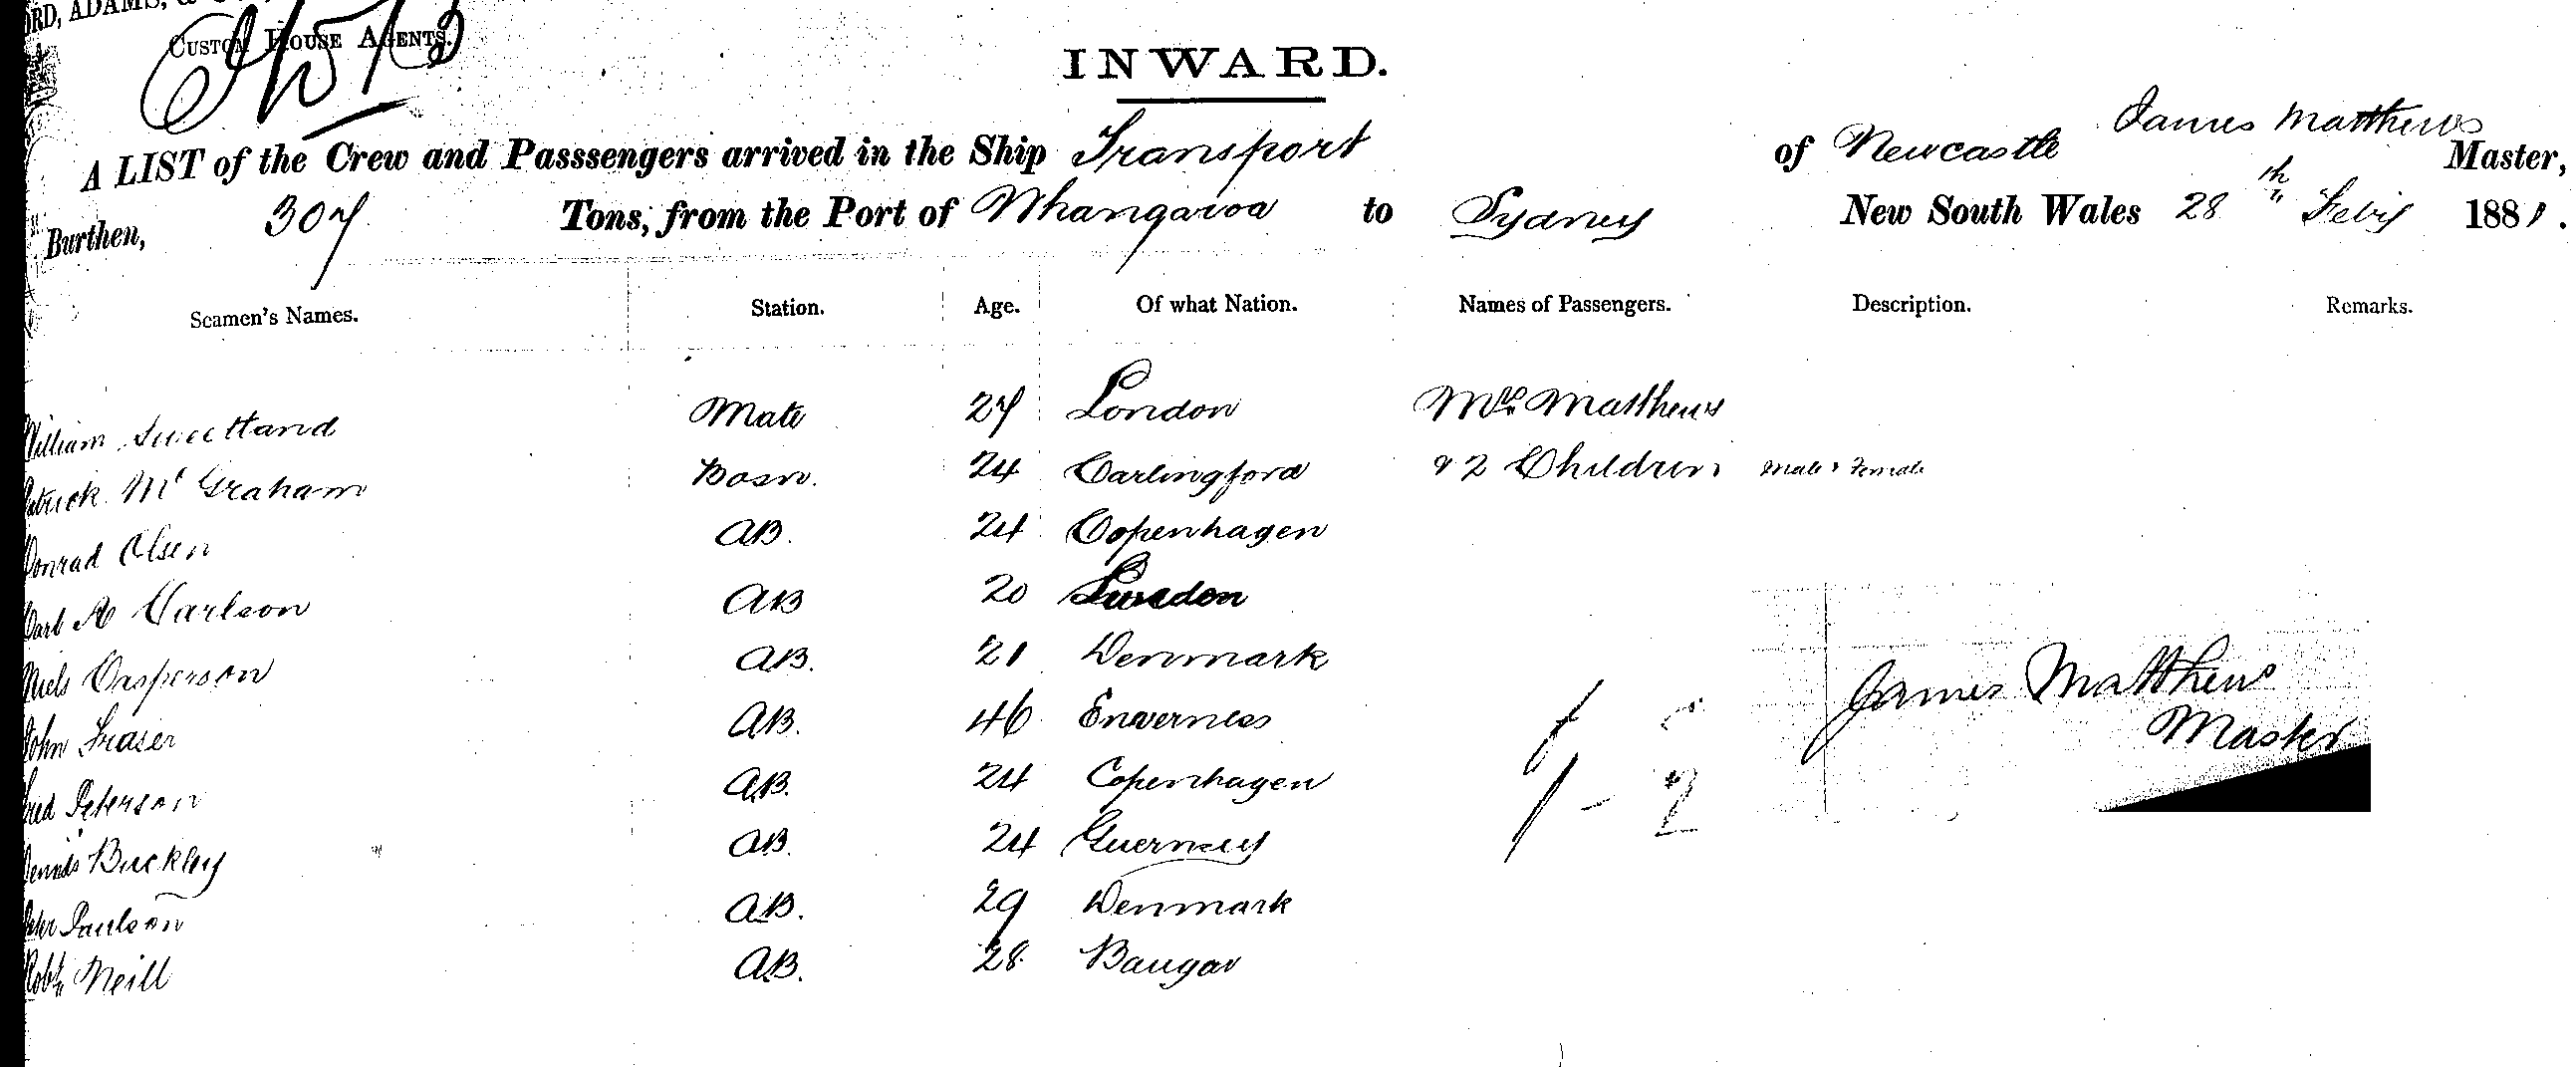 ORD, ADAMS, &
CUSTOM HOUSE AGENTS.
INWARD.
A LIST of the Crew and Passsengers arrived in the Ship Transport of Newcastle James Matthews Master,
Burthen, 307 Tons, from the Port of Whangaroa to Sydney New South Wales 28th Feby 1881.
Seamen's Names. Station. Age. Of what Nation. Names of Passengers. Description. Remarks.
William Sweetland Mate 27 London Mrs Matthews
Patrick Mc Graham Bosn. 24 Carlingford & 2 Children Male & Female
Conrad Olsen AB. 24 Copenhagen
Carl A Carlson AB 20 Sweden
Niels Casperson AB. 21 Denmark
John Fraser AB. 46 Enverness
Fred Peterson AB. 24 Copenhagen
Dennis Buckley AB. 24 Guernsey
Peter Paulson AB. 29 Denmark
Robt Neill AB. 28 Bangor
James Matthews
Master
1 - 2